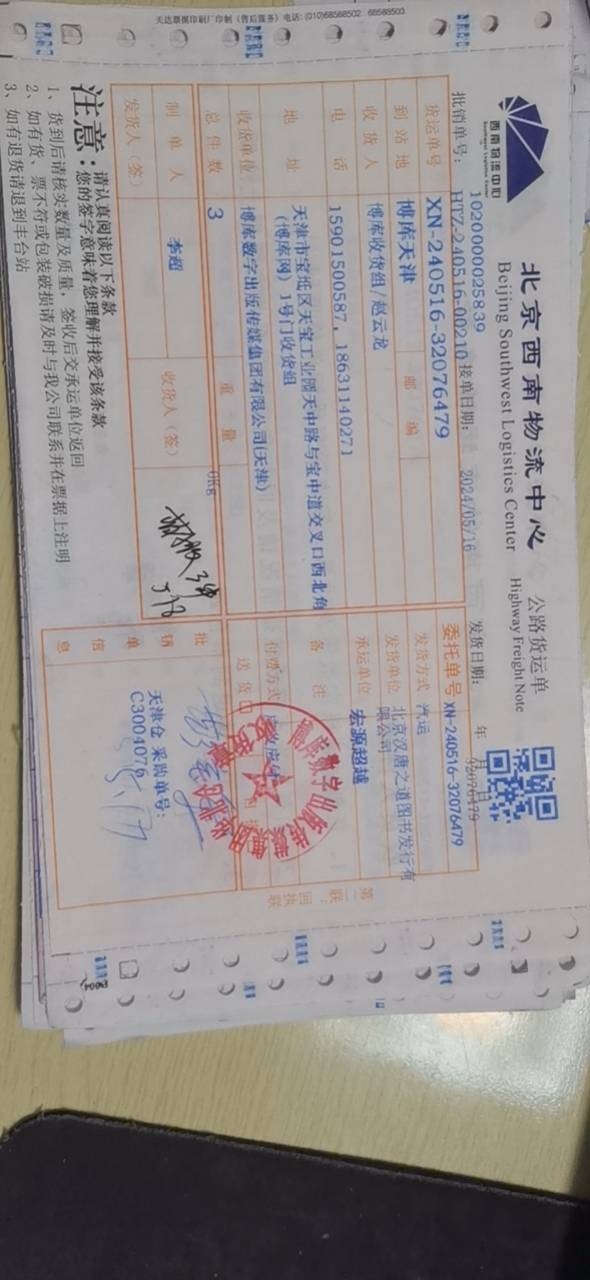 天达票据印刷厂印制（售后服务）电话：(010)68568502 68568503
西南物流中心
Southwest Logistics Center
北京西南物流中心
Beijing Southwest Logistics Center
公路货运单
Highway Freight Note
1020000025839
批销单号： HDZ-240516-00210 接单日期： 2024/05/16 发货日期： 年 月 日
32076479
货运单号 XN-240516-32076479 委托单号 XN-240516-32076479
到站地 博库天津 邮编 发货方式 汽运
收货人 博库收货组/赵云龙 发货单位 北京汉唐之道图书发行有限公司
电话 15901500587, 18631140271 承运单位 宏源超越
地址 天津市宝坻区天宝工业园天中路与宝中道交叉口西北角（博库网）1号门收货组 备注
收货单位 博库数字出版传媒集团有限公司(天津) 付费方式
总件数 3 重量 0Kg 送货
制单人 李超 收货人（签）
发货人（签）
批销单信息 天津仓 采购单号：
C3004076
第二联：回执联
注意：
请认真阅读以下条款
您的签字意味着您理解并接受该条款
1、货到后请核实数量及质量，签收后交承运单位返回
2、如有货、票不符或包装破损请及时与我公司联系并在票据上注明
3、如有退货请退到丰台站